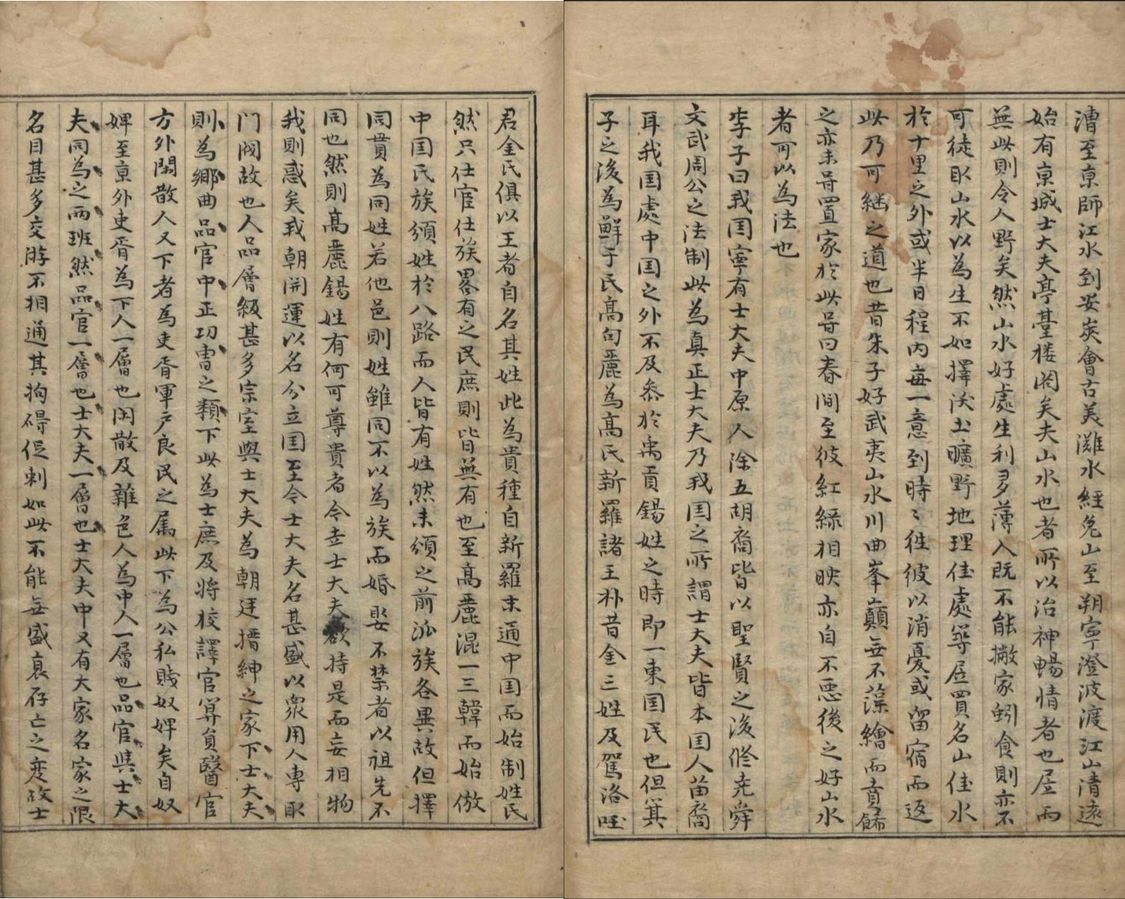 漕至京師江水到安炭會古美灘水經兔山至朔寧澄波渡江山清遠
始有京城士大夫亭臺樓閣矣夫山水也者所以治神暢情者也居而
無此則令人野矣然山水好處生利多薄人既不能撇家蚓食則亦不
可徒取山水以為生不如擇沃土曠野地理佳處築居買名山佳水
於十里之外或半日程內每一意到時〻往彼以消憂或留宿而返
此乃可繼之道也昔朱子好武夷山水川曲峯巔無不藻繪而賁餙
之亦未嘗置家於此嘗曰春間至彼紅綠相映亦自不惡後之好山水
者可以為法也
李子曰我国寧有士大夫中原人除五胡裔皆以聖賢之後修堯舜
文武周公之法制此為真正士大夫乃我国之所謂士大夫皆本国人苗裔
耳我国處中国之外不及叅於禹貢錫姓之時即一東国民也但箕
子之後為鮮于氏高句麗為高氏新羅諸王朴昔金三姓及駕洛国
君金氏俱以王者自名其姓此為貴種自新羅末通中国而始制姓氏
然只仕宦仕族畧有之民庶則皆無有也至高麗混一三韓而始倣
中国氏族頒姓於八路而人皆有姓然未頒之前派族各異故但擇
同貫為同姓若他邑則姓雖同不以為族而婚娶不禁者以祖先不
同也然則高麗錫姓有何可尊貴者今世士大夫欲持是而妄相物
我則惑矣我朝開運以名分立国至今士大夫名甚盛以衆用人專取
門閥故也人品層級甚多宗室與士大夫為朝廷搢紳之家下士大夫
則為鄉曲品官中正功曹之類下此為士庶及將校譯官筭員醫官
方外閑散人又下者為吏胥軍戶良民之属此下為公私賤奴婢矣自奴
婢至京外吏胥為下人一層也閑散及雜色人為中人一層也品官與士大
夫同為之兩班然品官一層也士大夫一層也士大夫中又有大家名家之限
名目甚多交游不相通其拘碍促刺如此不能無盛衰存亡之变故士